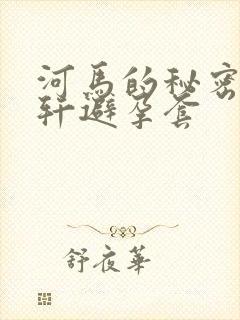 河馬的秘密
軒避孕套
舒夜華